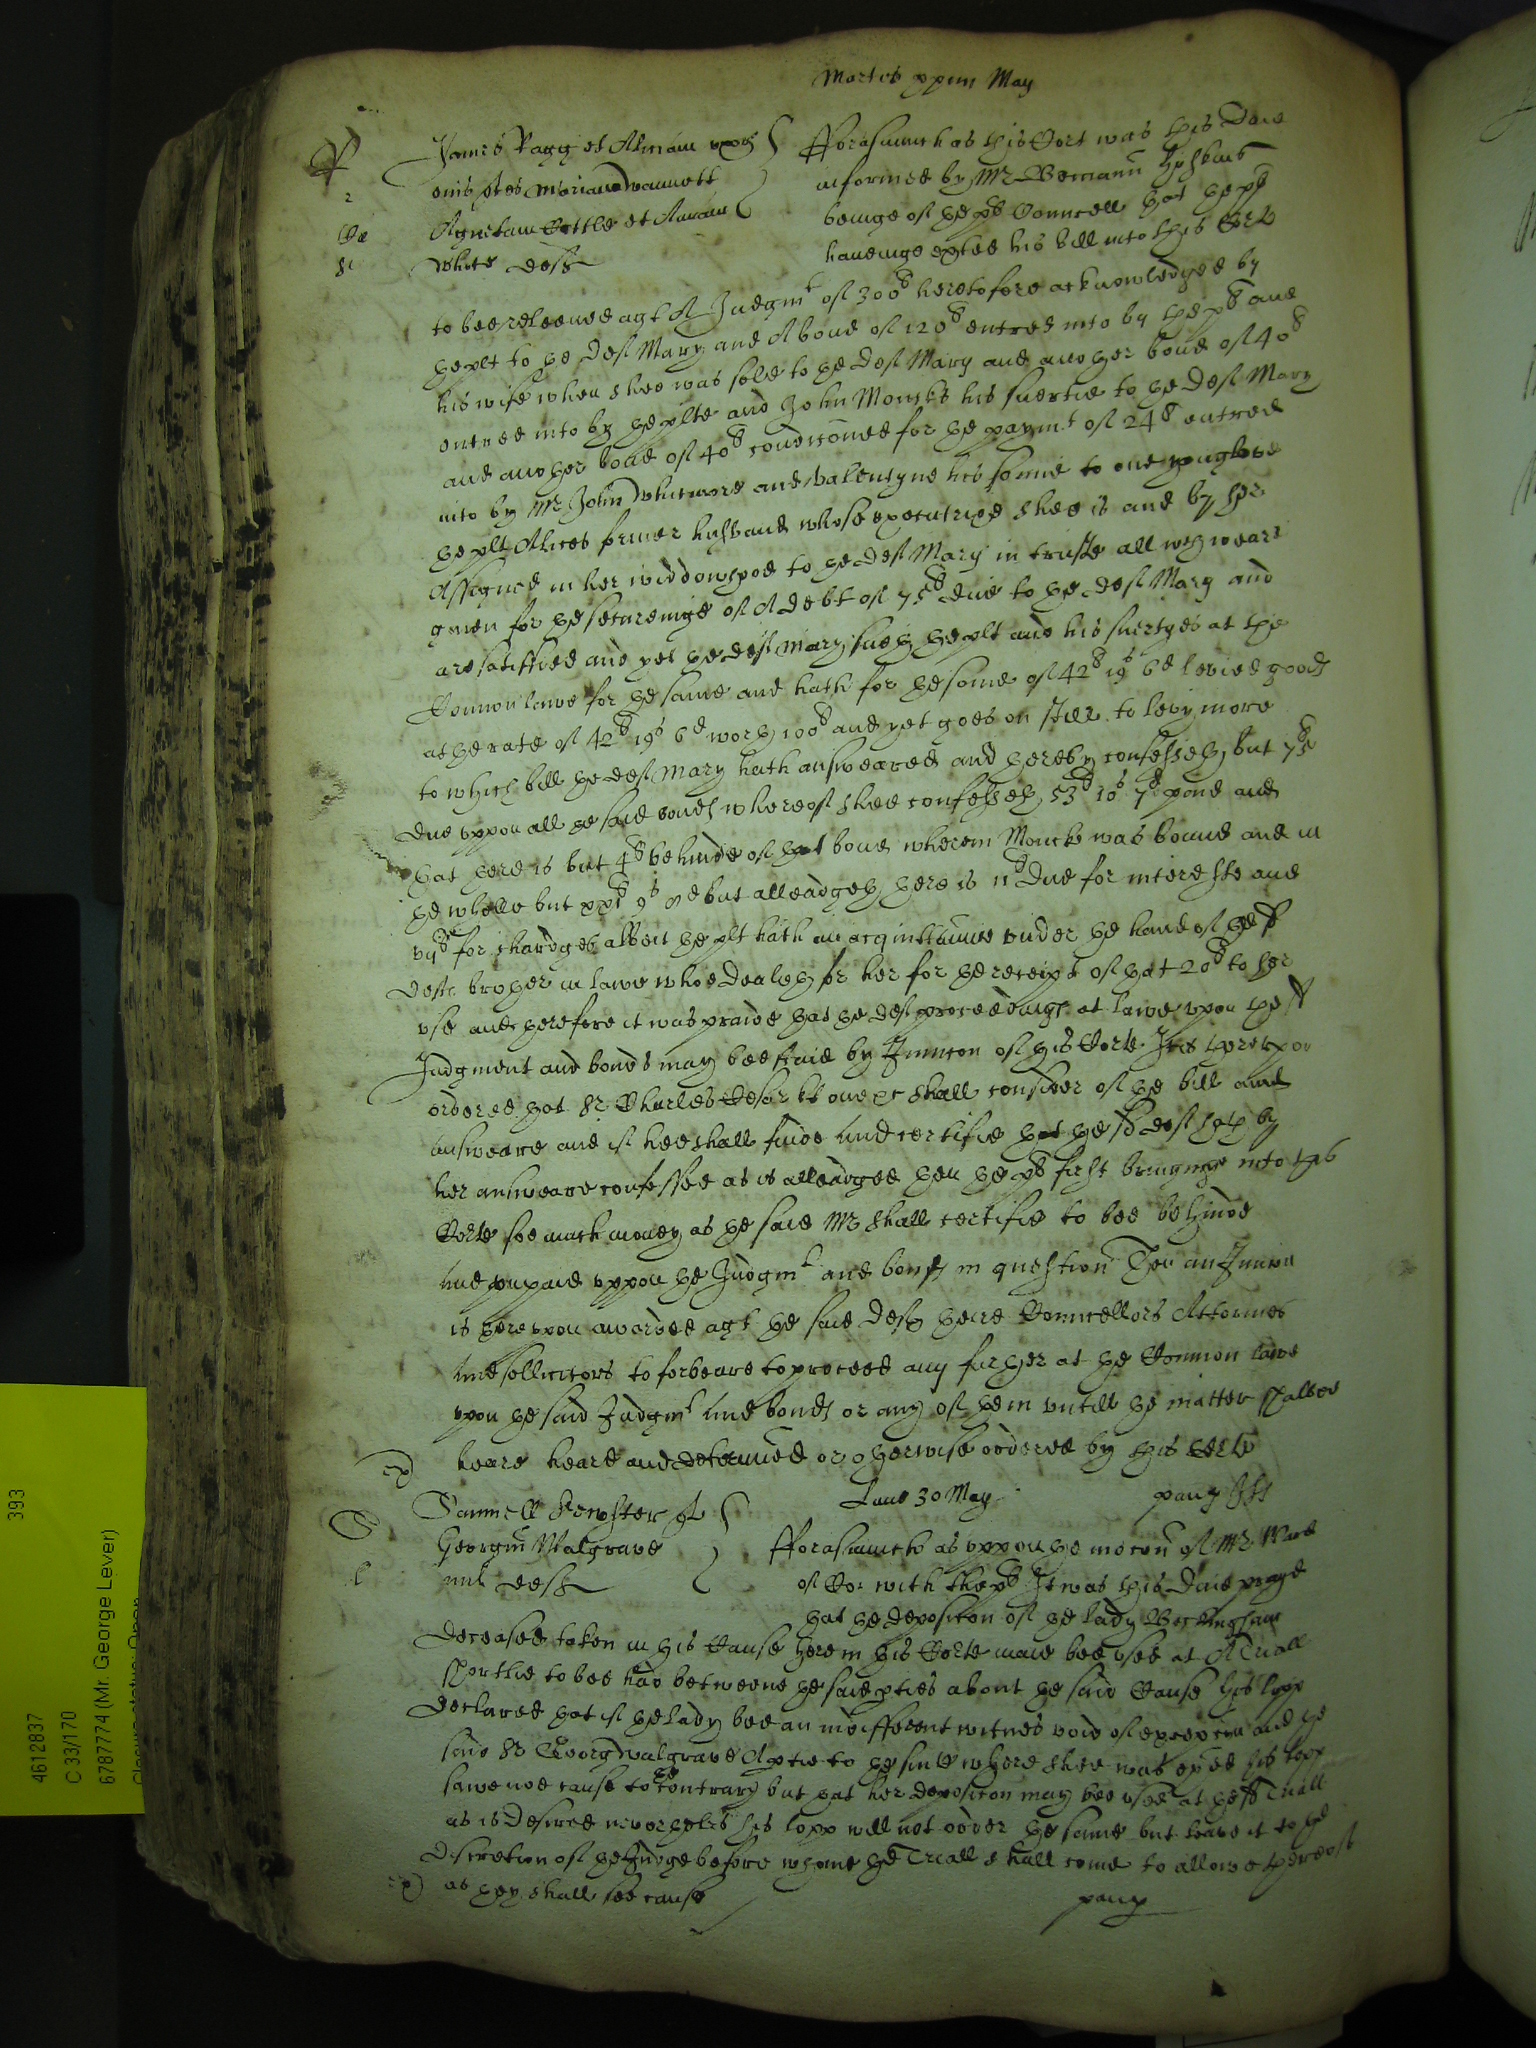 Martis xxviii May
James Pagg et Aliciam uxor
eius ptes Mariam Wannett
Agnetam Cottle et Annam
White deft
Forasmuch as this Cort was this daie
informed by Mr
beinge of the pts Councell that the pt
haveinge exhited his bill into this Corte
to bee releeved agt A Judgmt of 300l heretofore acknowledged by
the plt to the deft Mary and A bond of 120l entred into by the pt and
his wife when shee was sole to the deft Mary and another bond of 40l
entred into by the plte and John Moncks his suertie to the deft Mary
and another bond of 40l condiconed for the paymt of 24l entred
into by Mr John Whitmore and Valentyne his sonne to one
the plt Alices former husband whose executrixe shee is and by her
Assigned in her widdowhood to the deft Mary in truste all wch weare
given for the secureinge of A debt of 75l due to the deft Mary and
are satisfied and yet the deft Mary sueth the plt and his suertyes at the
Common lawe for the same and hath for the some of 42l 19s 6d levied goods
at the rate of 42l 19s 6d worth 100l and yet goes on still to levy more
to which bill the deft Mary hath answeared and thereby confesseth but 75l
due uppon all the said bonds whereof shee confesseth 53l 10s 7d paid and
that there is but 4l behinde of that bond wherein Monck was bound and in
the wholle but xxil 9s but alleadgeth there is 11l due for intereste and
for chardges albeit the plt hath an acquittance under the hand of the
defts brother in lawe whoe dealeth for her for the receipt of that 20l to her
use and therefore it was praied that the deft proceedings at lawe upon the sd
Judgment and bonds may bee staid by Iniuncon of this Corte. It is thereupon
ordered that Sr Charles Cesar kt one &c shall consider of the bill and
answeare and if hee shall finde and certifie that the sd deft hath by
her answeare confessed as is alleadged then the pt first bringinge into this
Corte soe much money as the said Mr shall certifie to bee behinde
and unpaid uppon the Judgmt and bonds in question Then an Iniuncon
is thereupon awarded agt the said deft theire Councellors Attornies
and sollicitors to forbeare to proceed any further at the Common lawe
upon the said Judgmt and bonds or any of them untill the matter shalbee
heare heard and determined or otherwise ordered by this Corte
Lune 30 May
Samuell Kempster plt
Georgiu Walgrave
mil deft
Forasmuch as uppon the mocon of Mr
of Co: with the pt It was this daie prayed
that the deposicon of the Lady Beckingham
deceased taken in this Cause here in this Corte maie bee used at A Triall
shortlie to bee had betweene the said pties about the said Cause his lopp
declared that if the Lady bee an indifferent witnes void of excepcon and the
said Sr Georg Walgrave A ptie to the suite where shee was exied his lopp
sawe noe cause to the contrary but that her deposicon may bee used at the sd Triall
as is desired neverthelesse his lopp will not order the same but leave it to the
discretion of the Judge before whome the Triall shall come to allowe thereof
as they shall see cause
4612837
C 33/170
6787774 (Mr. George Lever)
393